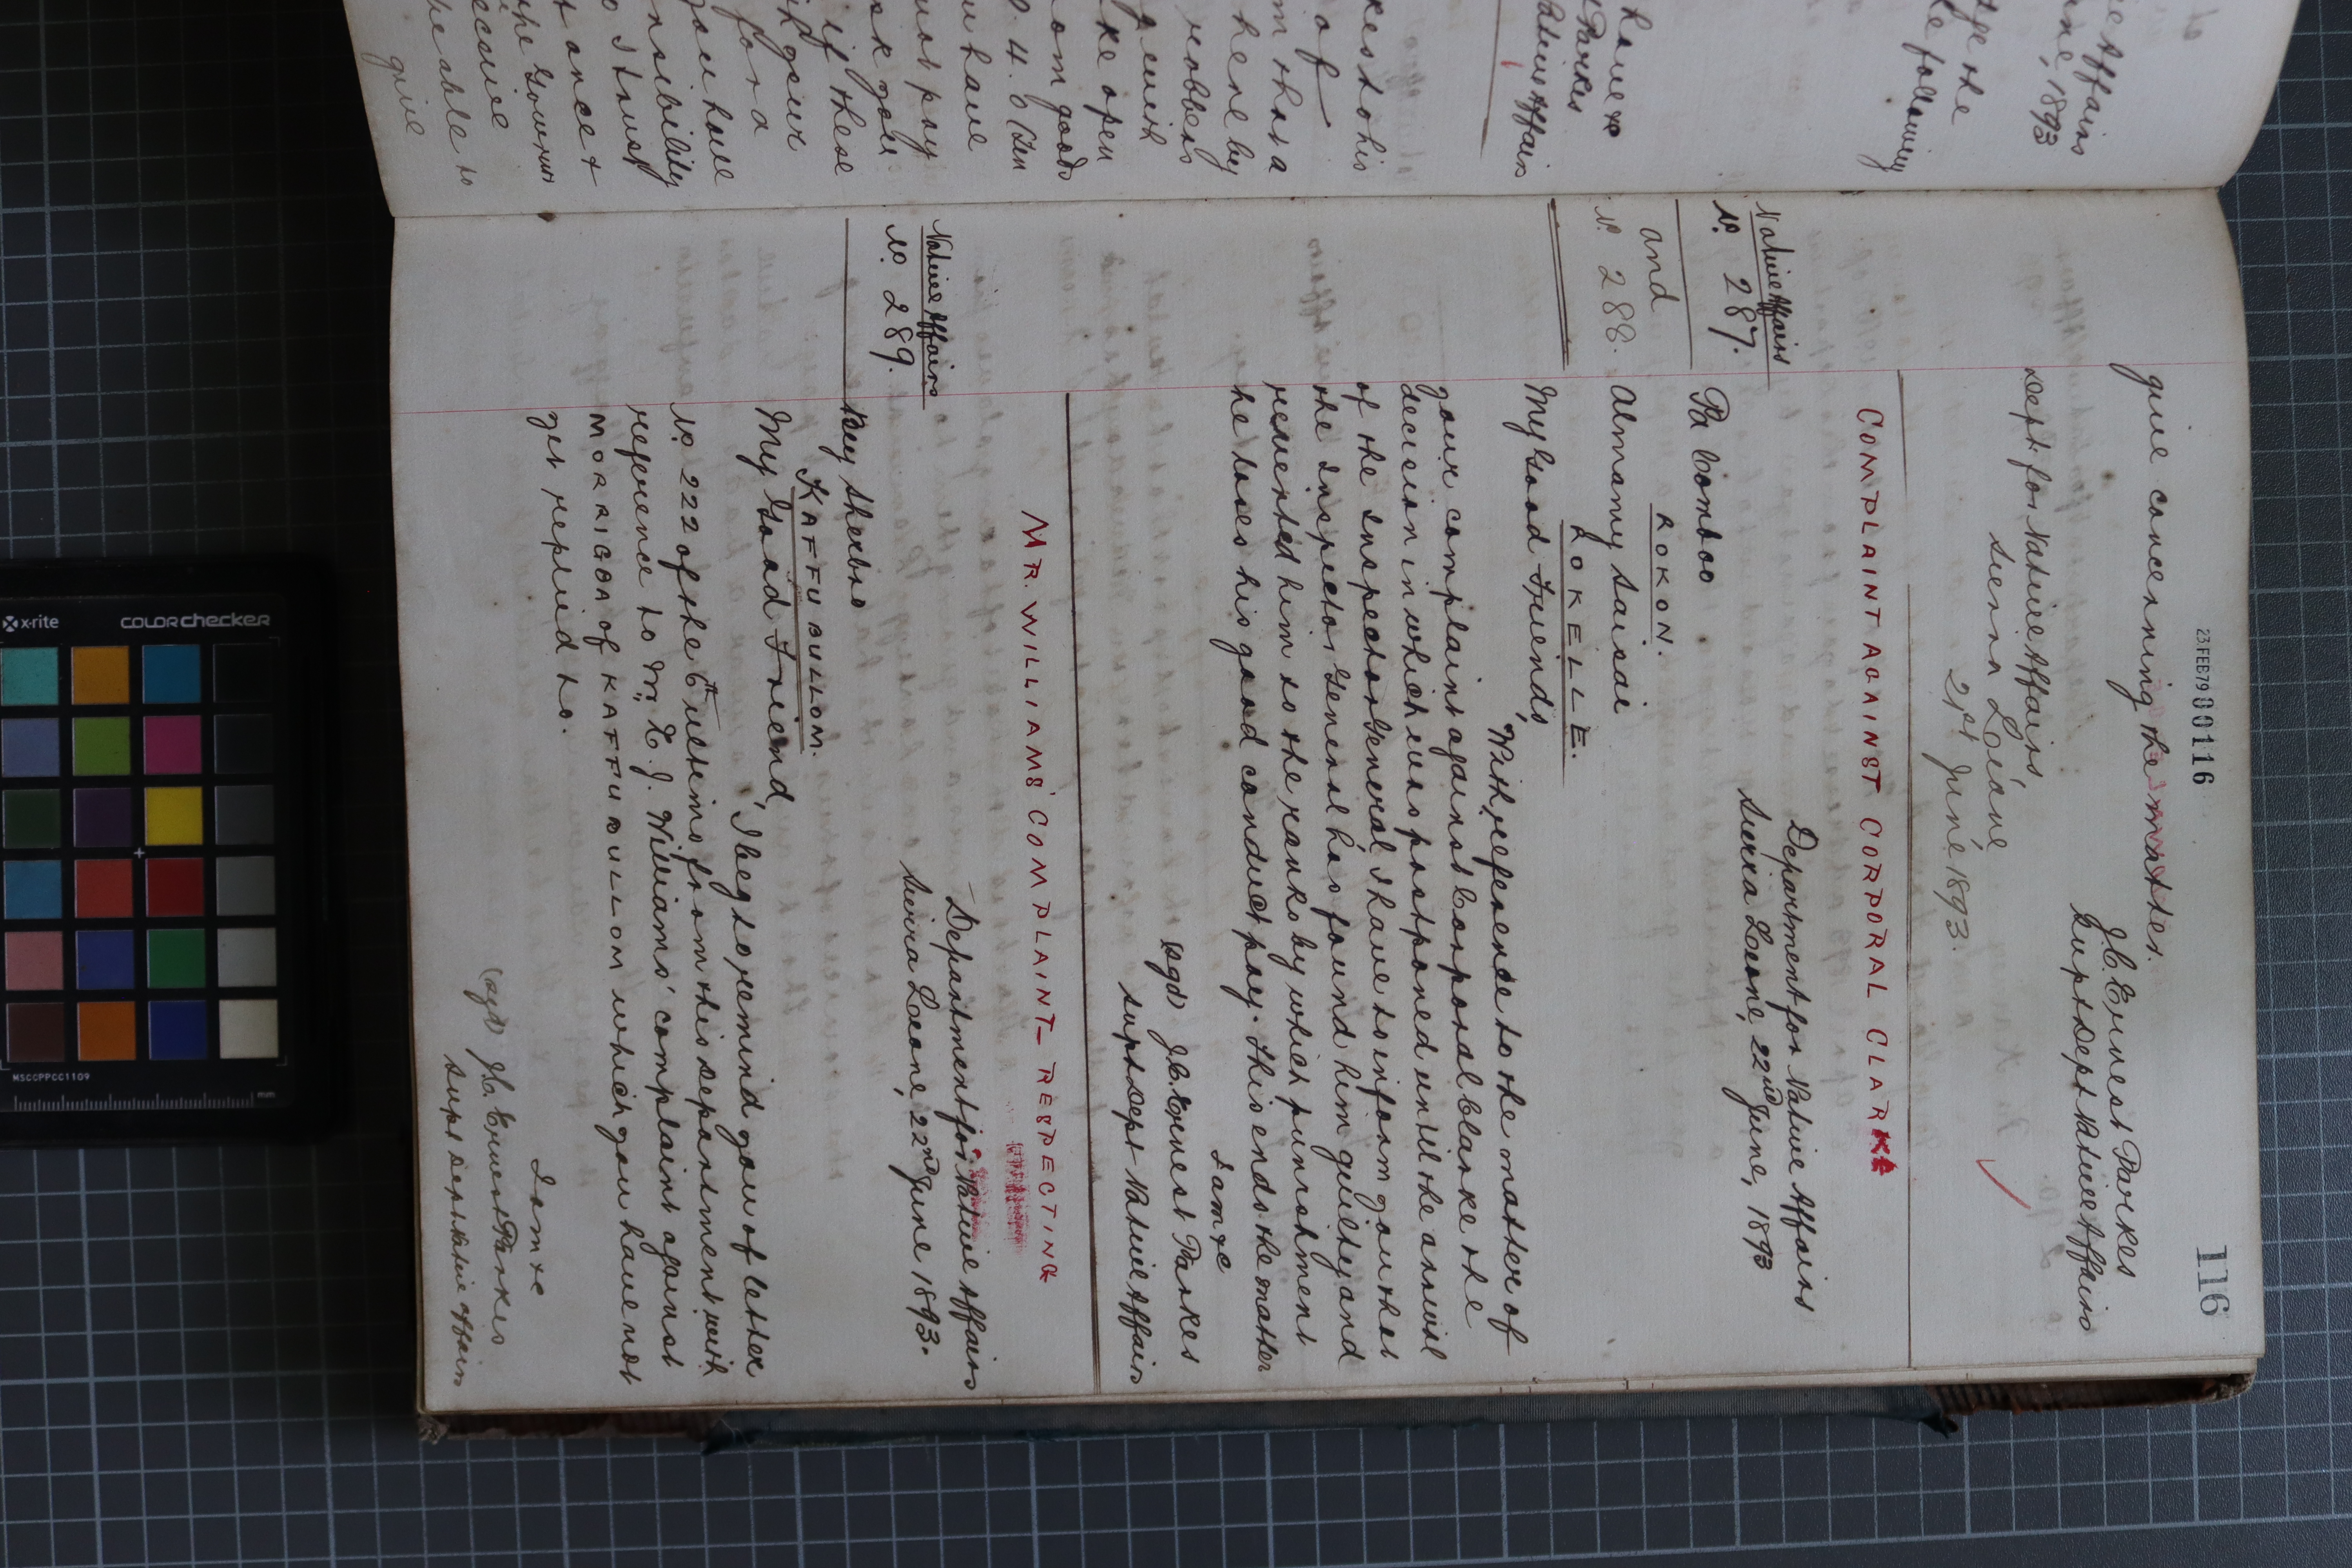 ve Affairs
ne, 1893
ge the
le following
have &c
Parkes
Native Affairs
kes to his
of
m that a
here by
robbers
y with
ke open
om good
0. 4. 0 (Ten
u have
not pay
sk you
if these
ih your
for a
you have
nsibility
o I trust
t once &
the Government
eceive
be able to
give
23FEB79 00116
116
give concerning the matter.
J.C. Ernest Parkes
Supt Dept Native Affairs
Dept for Native Affairs
Sierra Leone,
21st June, 1893.
COMPLAINT AGAINST CORPORAL CLARKE
Department for Native Affairs
Sierra Leone, 22nd June, 1893
Native Affairs
No. 287.
and
No. 288.
Pa Comboo
ROKON.
Almamy Saisai
ROKELLE.
My Good Friends,
With reference to the matter of
your complaint against Corporal Clarke the
decision in which was postponed until the arrival
of the Inspector General, I have to inform you that
the Inspector General has found him guilty and
reverted him to the ranks by which punishment
he loses his good conduct pay. This ends the matter
I am &c
(sgd) J.C. Ernest Parkes
Supt Dept Native Affairs
MR. WILLIAMS' COMPLAINT RESPECTING
Department for Native Affairs
Sierra Leone, 22nd June 1893.
Native Affairs
No. 289.
Bey Sherbro
KAFFU BULLOM.
My Good Friend,
I beg to remind you of letter
No. 222 of the 6th ultimo from this Department with
reference to Mr. T. J. Williams' complaint against
MORRIGBA of KAFFU BULLOM which you have not
yet replied to.
I am &c
(sgd) J.C. Ernest Parkes
Supt Dept Native Affairs
x-rite
colorchecker
MSCCPPCC1109
mm